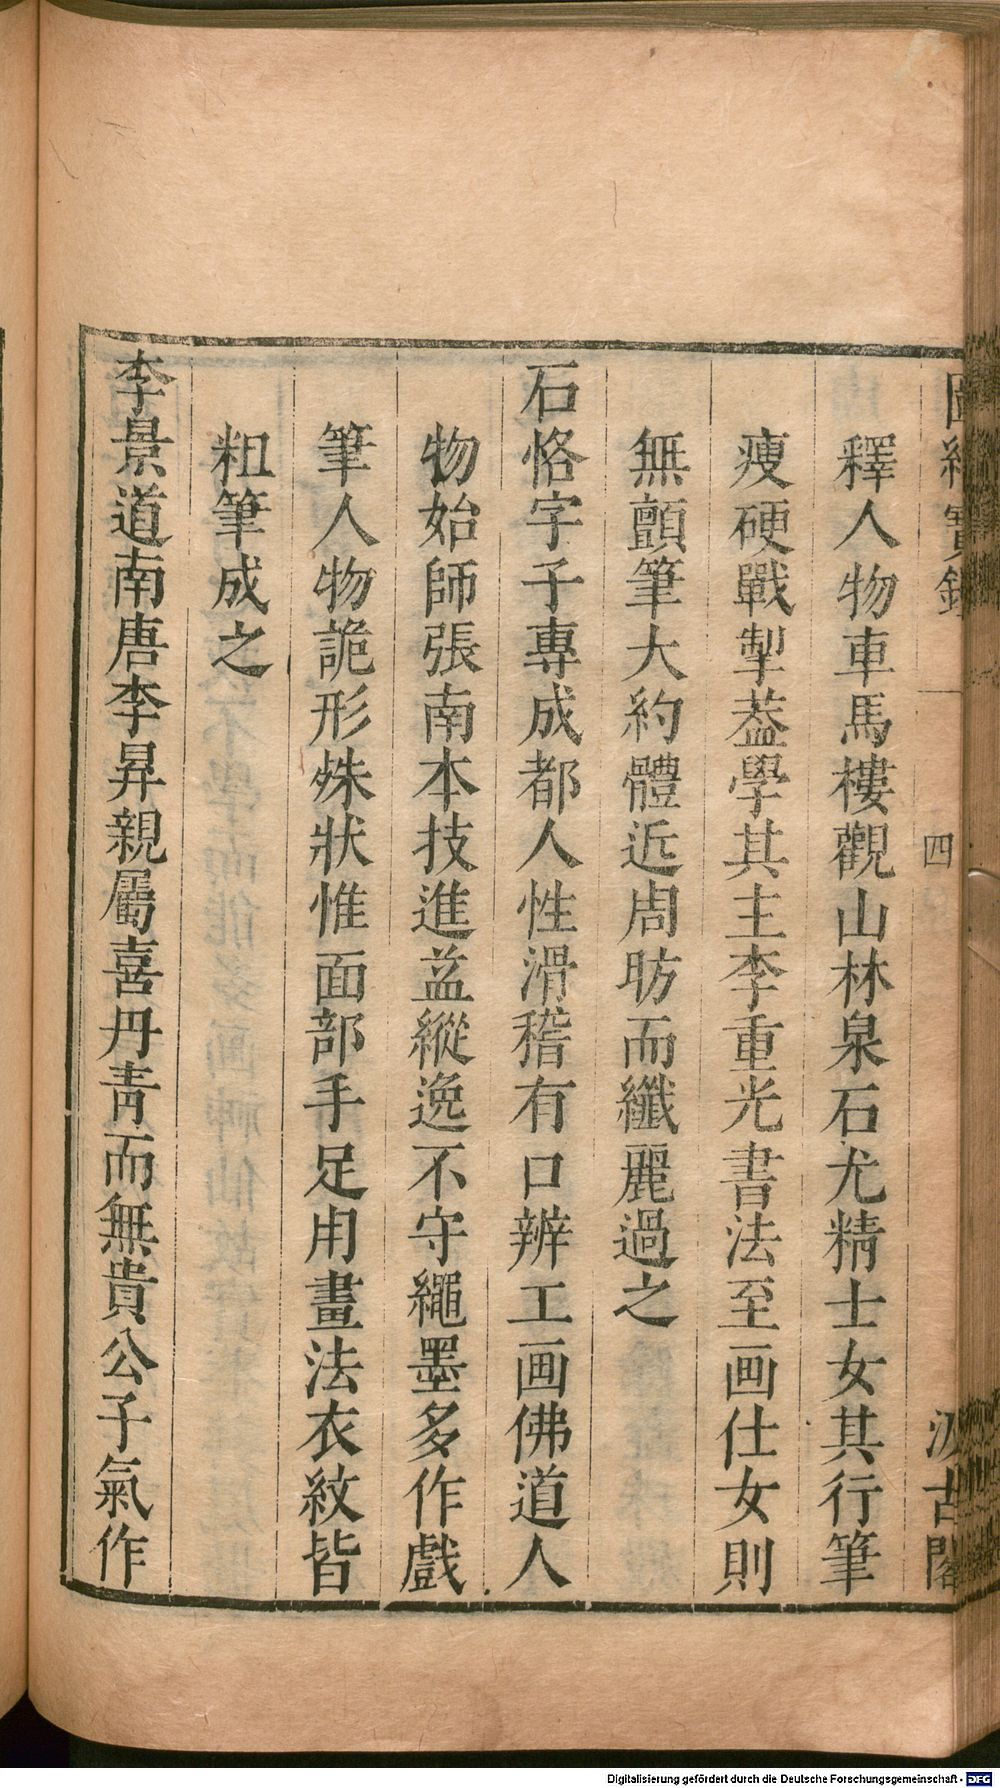 圖繪寶鑑 四 汲古閣
釋人物車馬樓觀山林泉石尤精士女其行筆
瘦硬戰掣葢學其主李重光書法至画仕女則
無顫筆大約體近周昉而纖麗過之
石恪字子專成都人性滑稽有口辨工画佛道人
物始師張南本技進益縱逸不守繩墨多作戲
筆人物詭形殊狀惟面部手足用畫法衣紋皆
粗筆成之
李景道南唐李昇親屬喜丹靑而無貴公子氣作
Digitalisierung gefördert durch die Deutsche Forschungsgemeinschaft - DFG